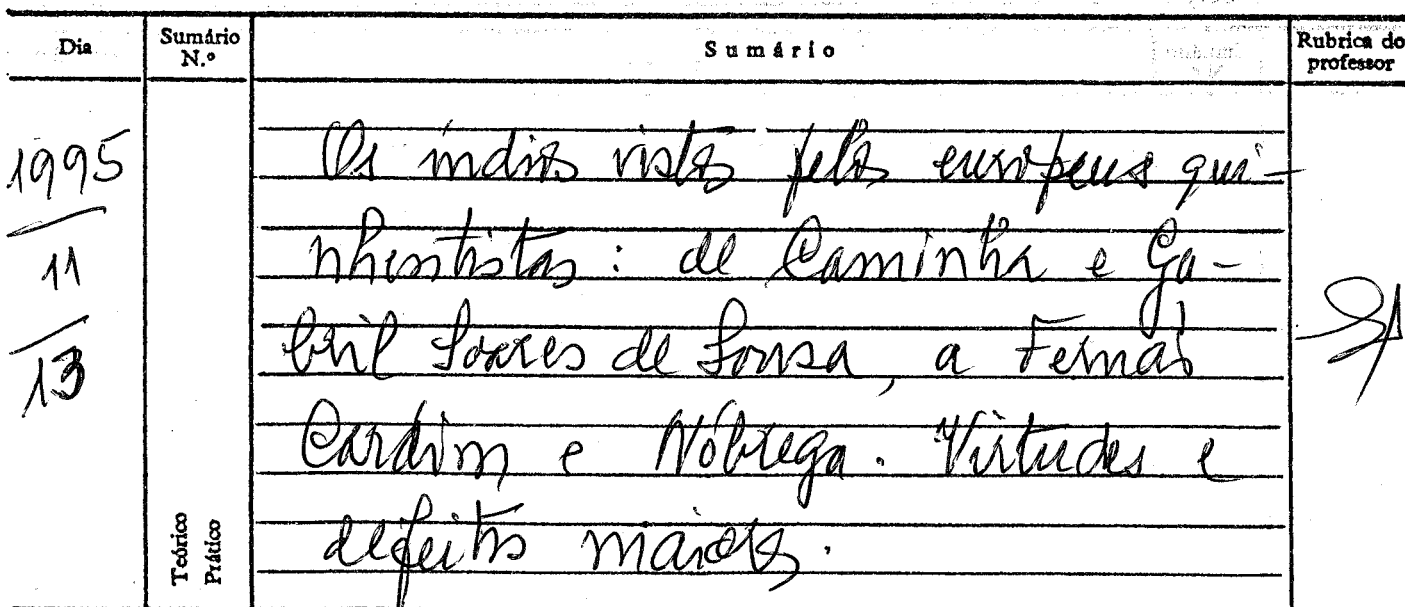 Dia
Sumário N.º
Sumário
Rubrica do professor
1995
11
13
Os índios vistos pelos europeus qui-
nhentistas: de Caminha e Ga-
briel Soares de Sousa, a Fernão
Cardim e Nóbrega. Virtudes e
defeitos maiores.
Teórico
Prático